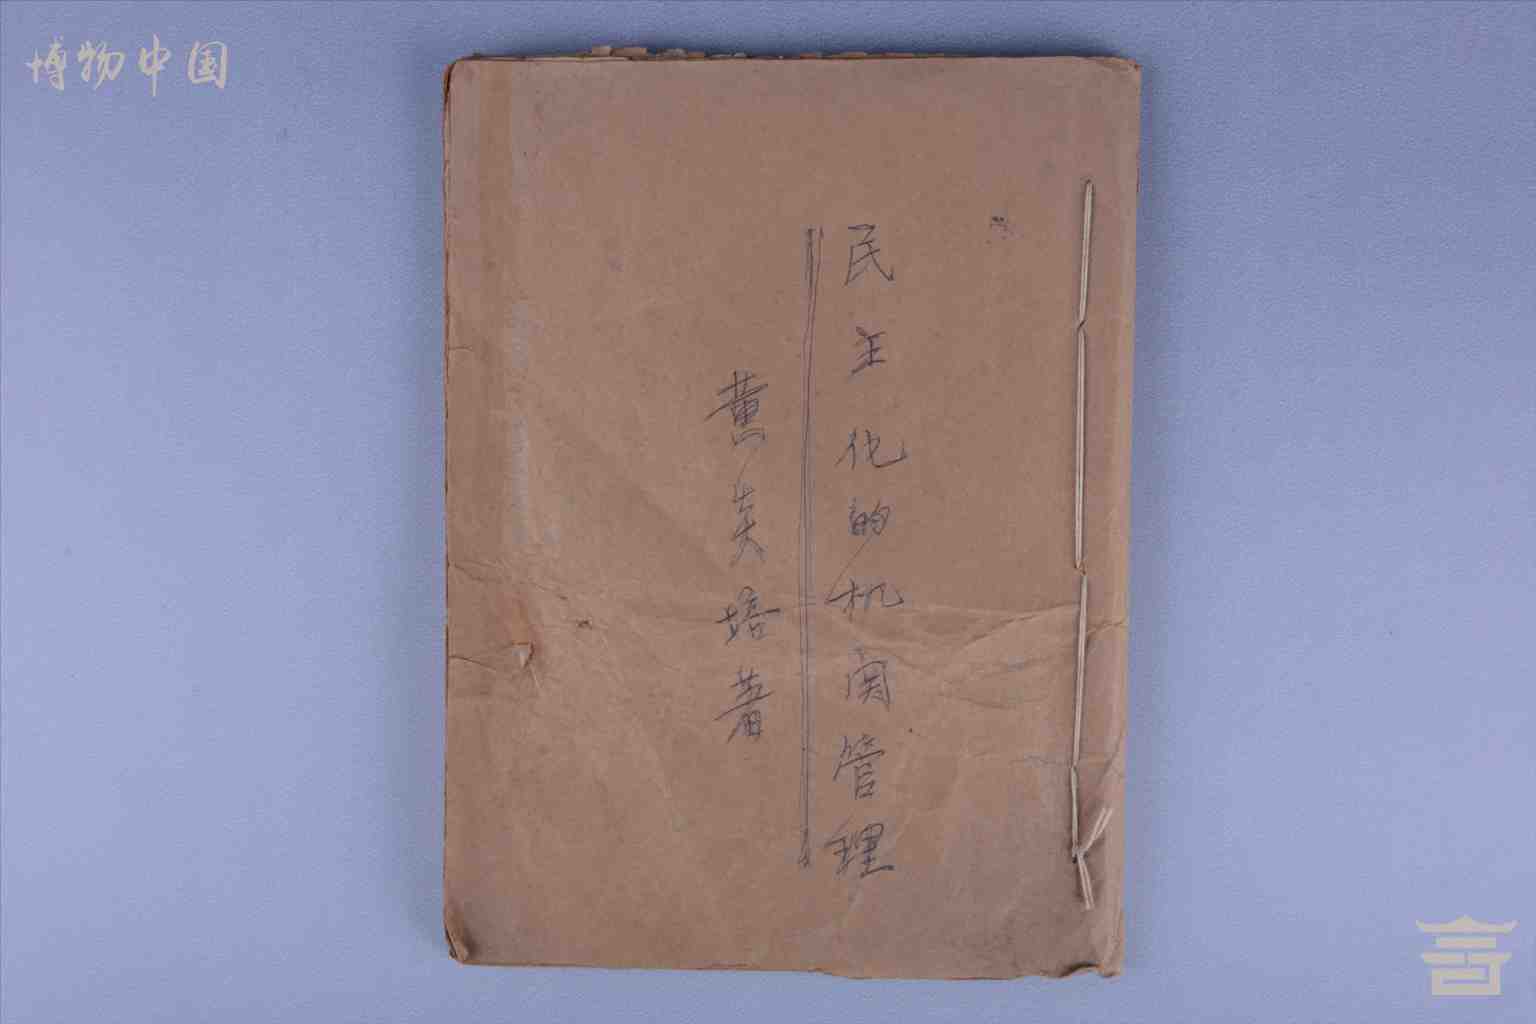 博物中国
民主化的机关管理
黄炎培著